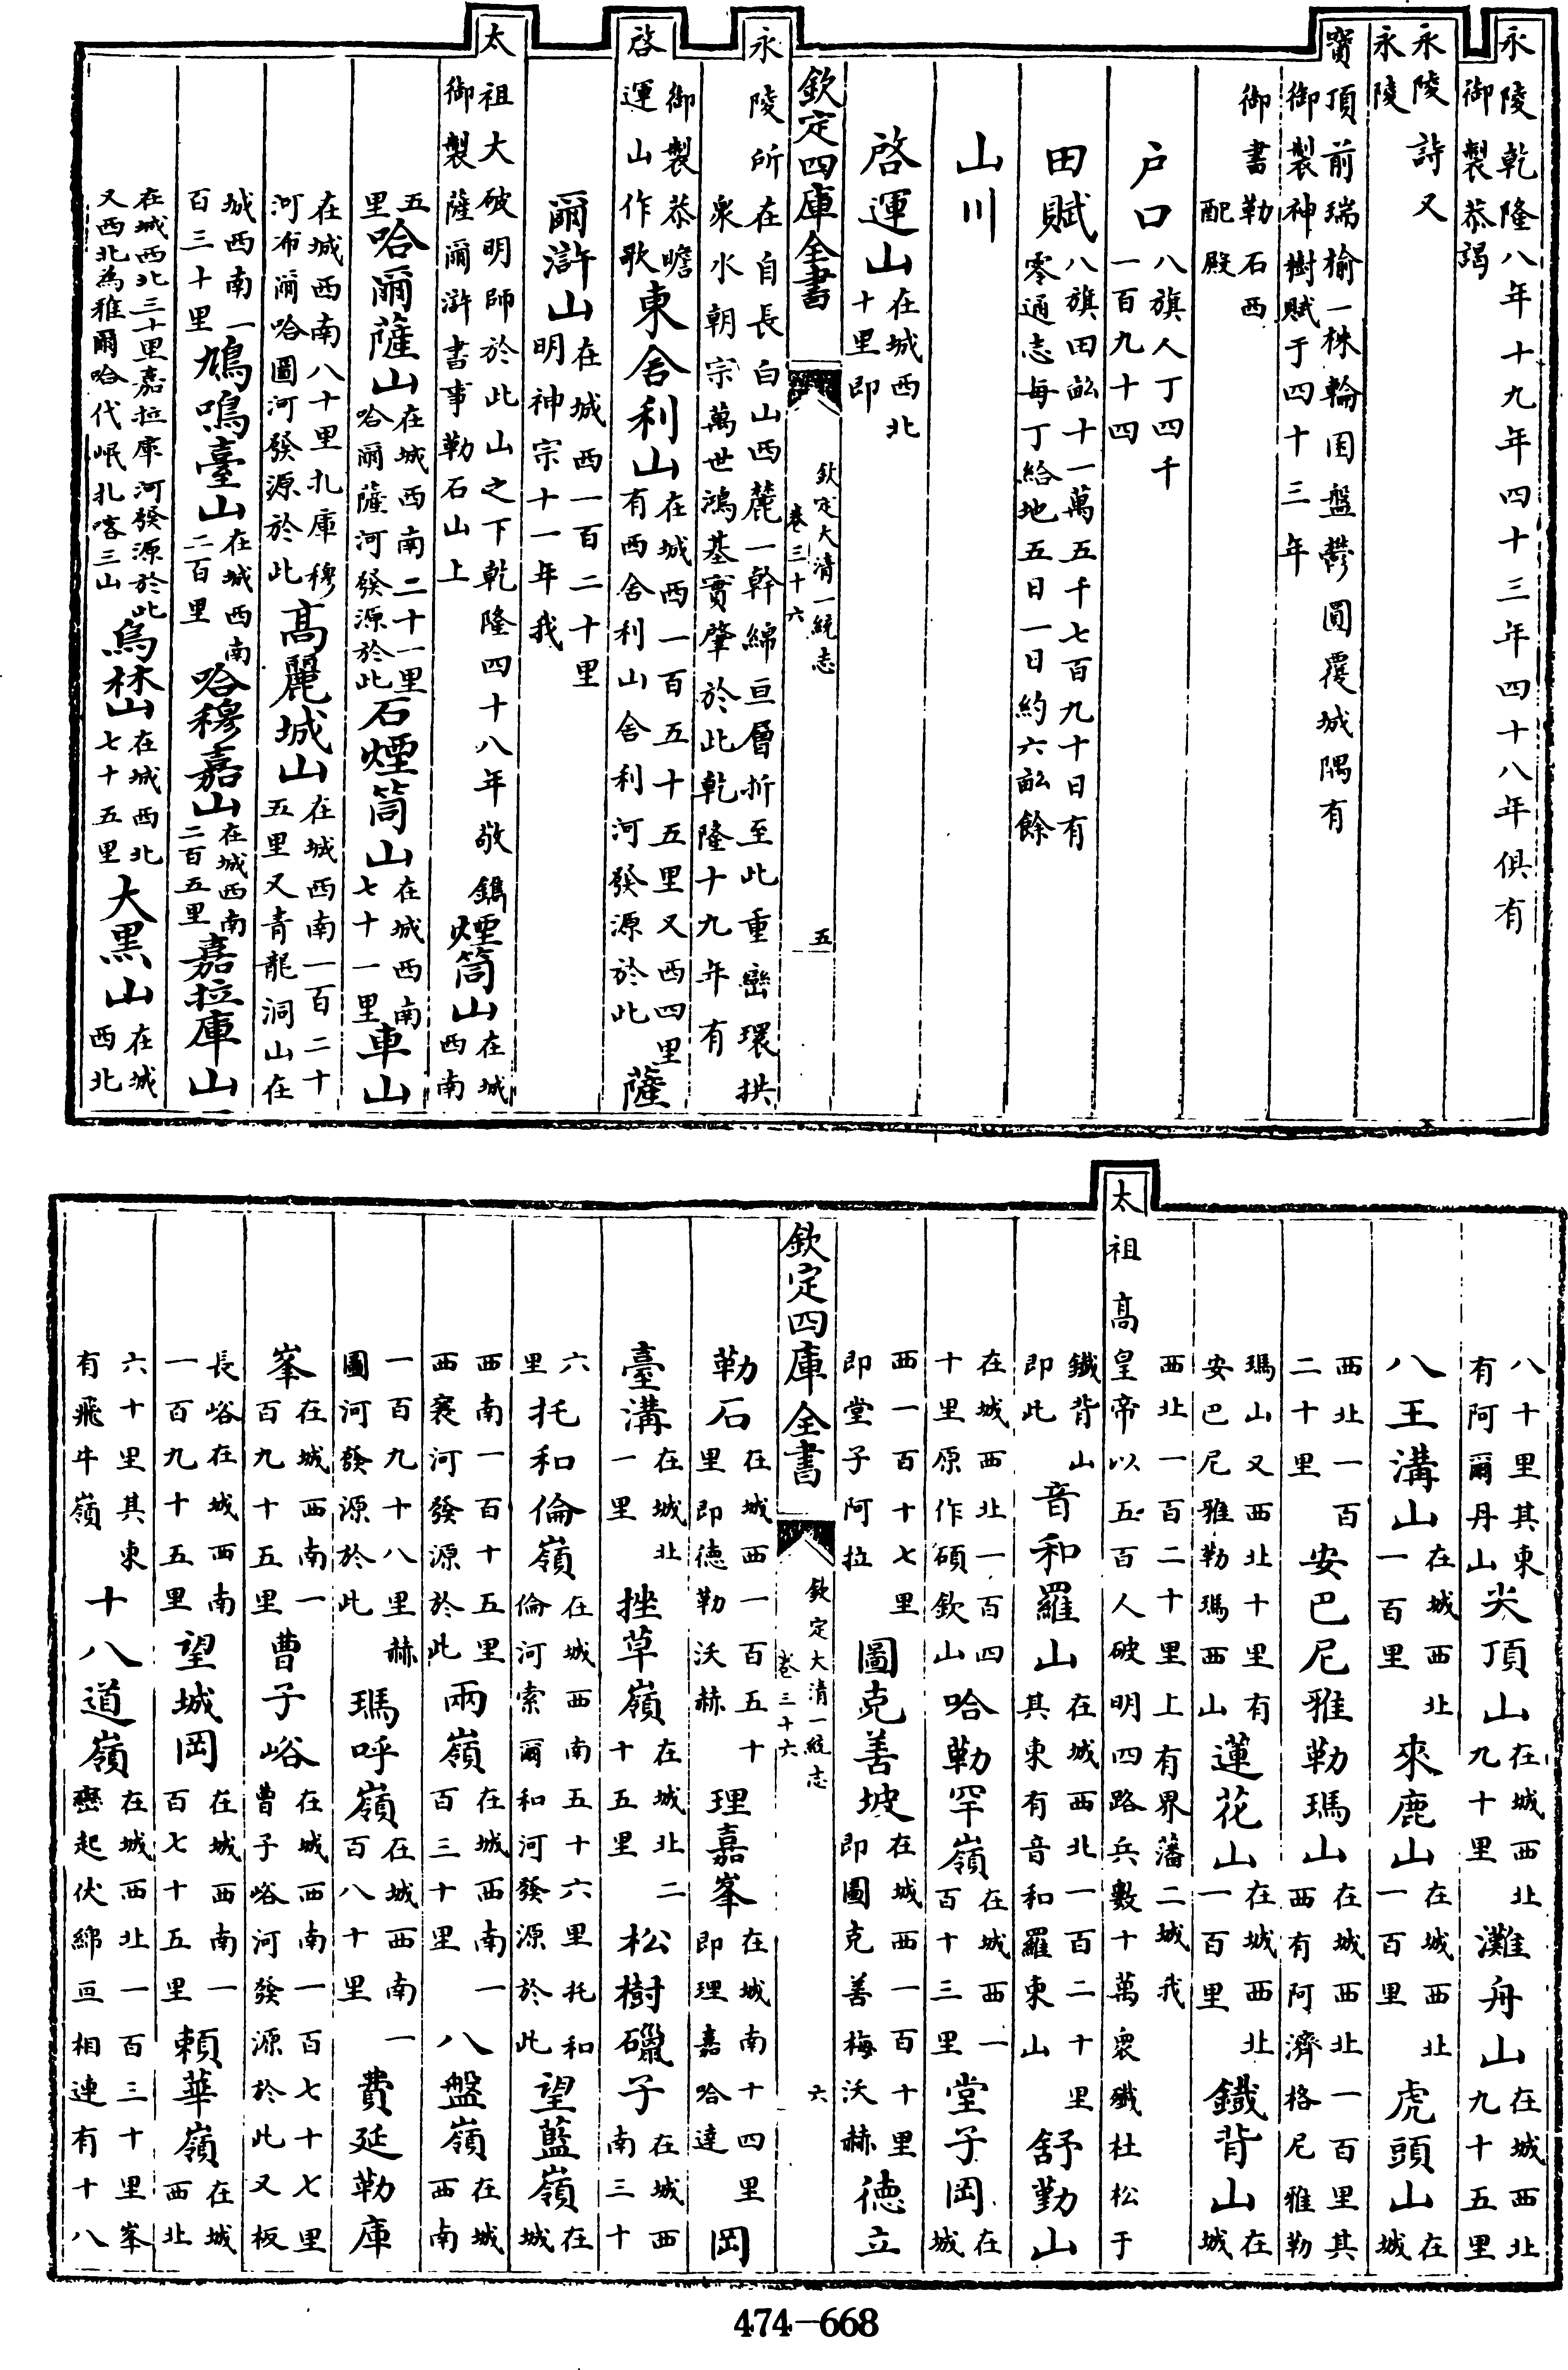 永陵乾隆八年十九年四十三年四十八年俱有
御製恭謁
永陵詩又
永陵
寳頂前瑞榆一株輪囷盤鬱圓覆城隅有
御製神樹賦于四十三年
御書勒石西
配殿
户口八旗人丁四千
一百九十四
田賦八旗田畝十一萬五千七百九十日有
零通志每丁給地五日一日約六畝餘
山川
啓運山在城西北
十里即
欽定四庫全書
欽定大清一統志
卷三十六
五
永陵所在自長白山西麓一幹綿亘層折至此重巒環拱
衆水朝宗萬世鴻基實肇於此乾隆十九年有
御製恭瞻
啓運山作歌東舍利山在城西一百五十五里又西四里
有西舍利山舍利河發源於此薩
爾滸山在城西一百二十里
明神宗十一年我
太祖大破明師於此山之下乾隆四十八年敬鐫
御製薩爾滸書事勒石山上煙筒山在城
西南
五
里哈爾薩山在城西南二十一里
哈爾薩河發源於此石煙筒山在城西南
七十一里車山
在城西南八十里扎庫穆
河布爾哈圖河發源於此高麗城山在城西南一百二十
五里又青龍洞山在
城西南一
百三十里鳩鳴臺山在城西南
二百里哈穆嘉山在城西南
二百五里嘉拉庫山
在城西北三十里嘉拉庫河發源於此
又西北為雅爾哈代岷扎喀三山烏林山在城西北
七十五里大黑山在城
西北
八十里其東
有阿爾丹山尖頂山在城西北
九十里灘舟山在城西北
九十五里
八王溝山在城西北
一百里來鹿山在城西北
一百里虎頭山在
城
西北一百
二十里安巴尼雅勒瑪山在城西北一百里其
西有阿濟格尼雅勒
瑪山又西北十里有
安巴尼雅勒瑪西山蓮花山在城西北
一百里鐵背山在
城
西北一百二十里上有界藩二城我
太祖高皇帝以五百人破明四路兵數十萬衆殱杜松于
鐵背山
即此音和羅山在城西北一百二十里
其東有音和羅東山舒勤山
在城西北一百四
十里原作碩欽山哈勒罕嶺在城西一
百十三里堂子岡在
城
西一百十七里
即堂子阿拉圖克善坡在城西一百十里
即圖克善梅沃赫德立
欽定四庫全書
欽定大清一統志
卷三十六
六
勒石在城西一百五十
里即德勒沃赫理嘉峯在城南十四里
即理嘉哈達岡
臺溝在城北
一里挫草嶺在城北二
十五里松樹磖子在城西
南三十
六
里托和倫嶺在城西南五十六里托和
倫河索爾和河發源於此望藍嶺在
城
西南一百十五里
西褰河發源於此兩嶺在城西南一
百三十里八盤嶺在城
西南
一百九十八里赫
圖河發源於此瑪呼嶺在城西南一
百八十里費延勒庫
峯在城西南一
百九十五里曹子峪在城西南一百七十七里
曹子峪河發源於此又板
長峪在城西南
一百九十五里望城岡在城西南一
百七十五里頼華嶺在城
西北
六十里其東
有飛牛嶺十八道嶺在城西北一百三十里峯
巒起伏綿亘相連有十八
474—668